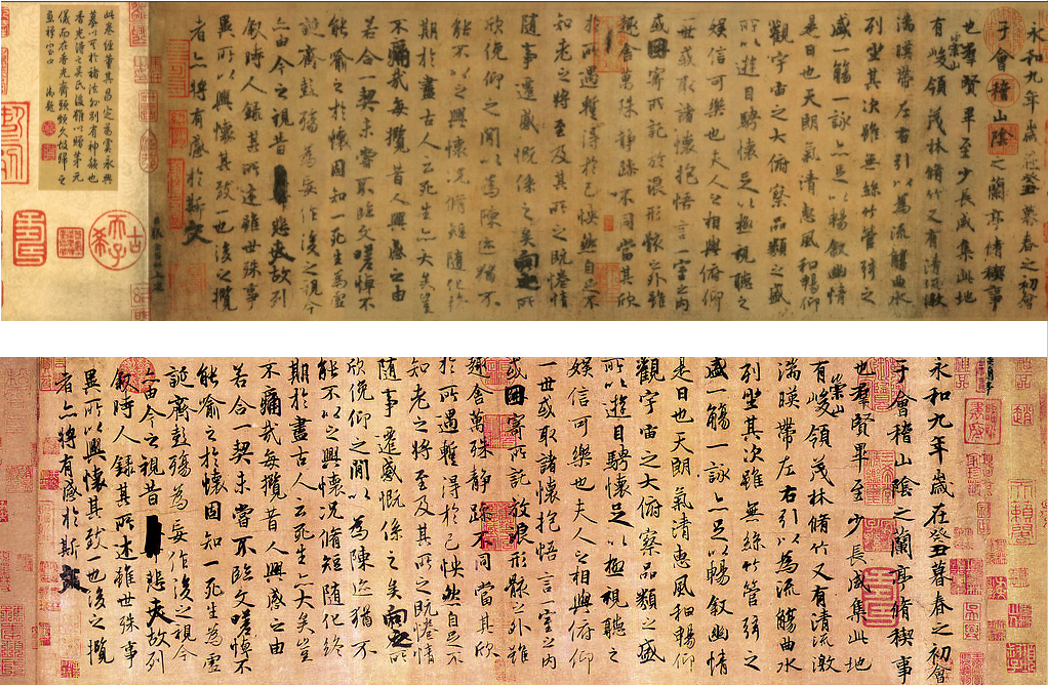 永和九年歲在癸丑暮春之初會
于會稽山陰之蘭亭脩稧事
也羣賢畢至少長咸集此地
有崇山峻領茂林脩竹又有清流激
湍暎帶左右引以為流觴曲水
列坐其次雖無絲竹管弦之
盛一觴一詠亦足以暢叙幽情
是日也天朗氣清惠風和暢仰
觀宇宙之大俯察品類之盛
所以遊目騁懷足以極視聽之
娛信可樂也夫人之相與俯仰
一世或取諸懷抱悟言一室之內
或因寄所託放浪形骸之外雖
趣舍萬殊靜躁不同當其欣
於所遇暫得於己怏然自足不
知老之將至及其所之既惓情
隨事遷感慨係之矣向之所
欣俛仰之閒以為陳迹猶不
能不以之興懷況脩短隨化終
期於盡古人云死生亦大矣豈
不痛哉每攬昔人興感之由
若合一契未嘗不臨文嗟悼不
能喻之於懷固知一死生為虛
誕齊彭殤為妄作後之視今
亦由今之視昔悲夫故列
叙時人錄其所述雖世殊事
異所以興懷其致一也後之攬
者亦將有感於斯文
此卷經董其昌定為虞永興
摹以其於褚法外別有神韻也
香光得之吳氏後雖以贈茅元
儀而在香光齋頭頗久故歸之
畫禪室也 御題
古希天子
永和九年歲在癸丑暮春之初會
于會稽山陰之蘭亭脩稧事
也羣賢畢至少長咸集此地
有崇山峻領茂林脩竹又有清流激
湍暎帶左右引以為流觴曲水
列坐其次雖無絲竹管弦之
盛一觴一詠亦足以暢叙幽情
是日也天朗氣清惠風和暢仰
觀宇宙之大俯察品類之盛
所以遊目騁懷足以極視聽之
娛信可樂也夫人之相與俯仰
一世或取諸懷抱悟言一室之內
或因寄所託放浪形骸之外雖
趣舍萬殊靜躁不同當其欣
於所遇暫得於己怏然自足不
知老之將至及其所之既惓情
隨事遷感慨係之矣向之所
欣俛仰之閒以為陳迹猶不
能不以之興懷況脩短隨化終
期於盡古人云死生亦大矣豈
不痛哉每攬昔人興感之由
若合一契未嘗不臨文嗟悼不
能喻之於懷固知一死生為虛
誕齊彭殤為妄作後之視今
亦由今之視昔悲夫故列
叙時人錄其所述雖世殊事
異所以興懷其致一也後之攬
者亦將有感於斯文